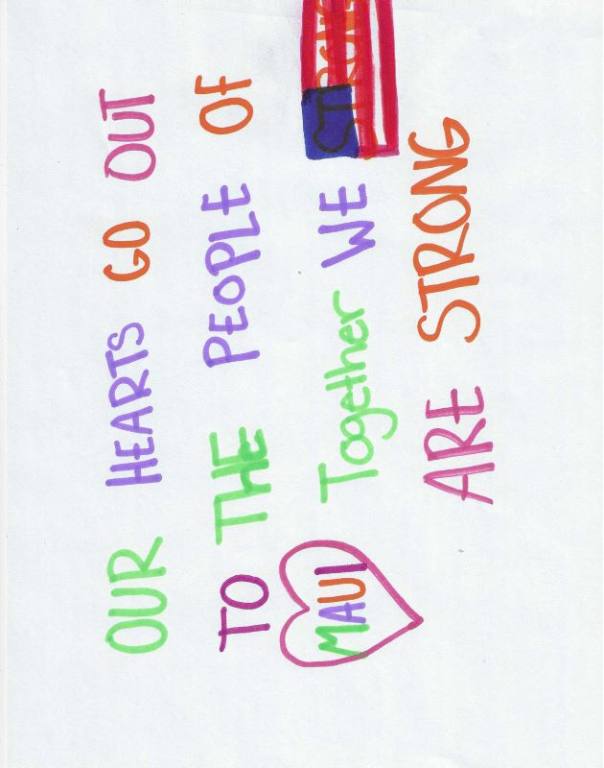 OUR HEARTS GO OUT
TO THE PEOPLE OF
MAUI Together WE STRONG
ARE STRONG